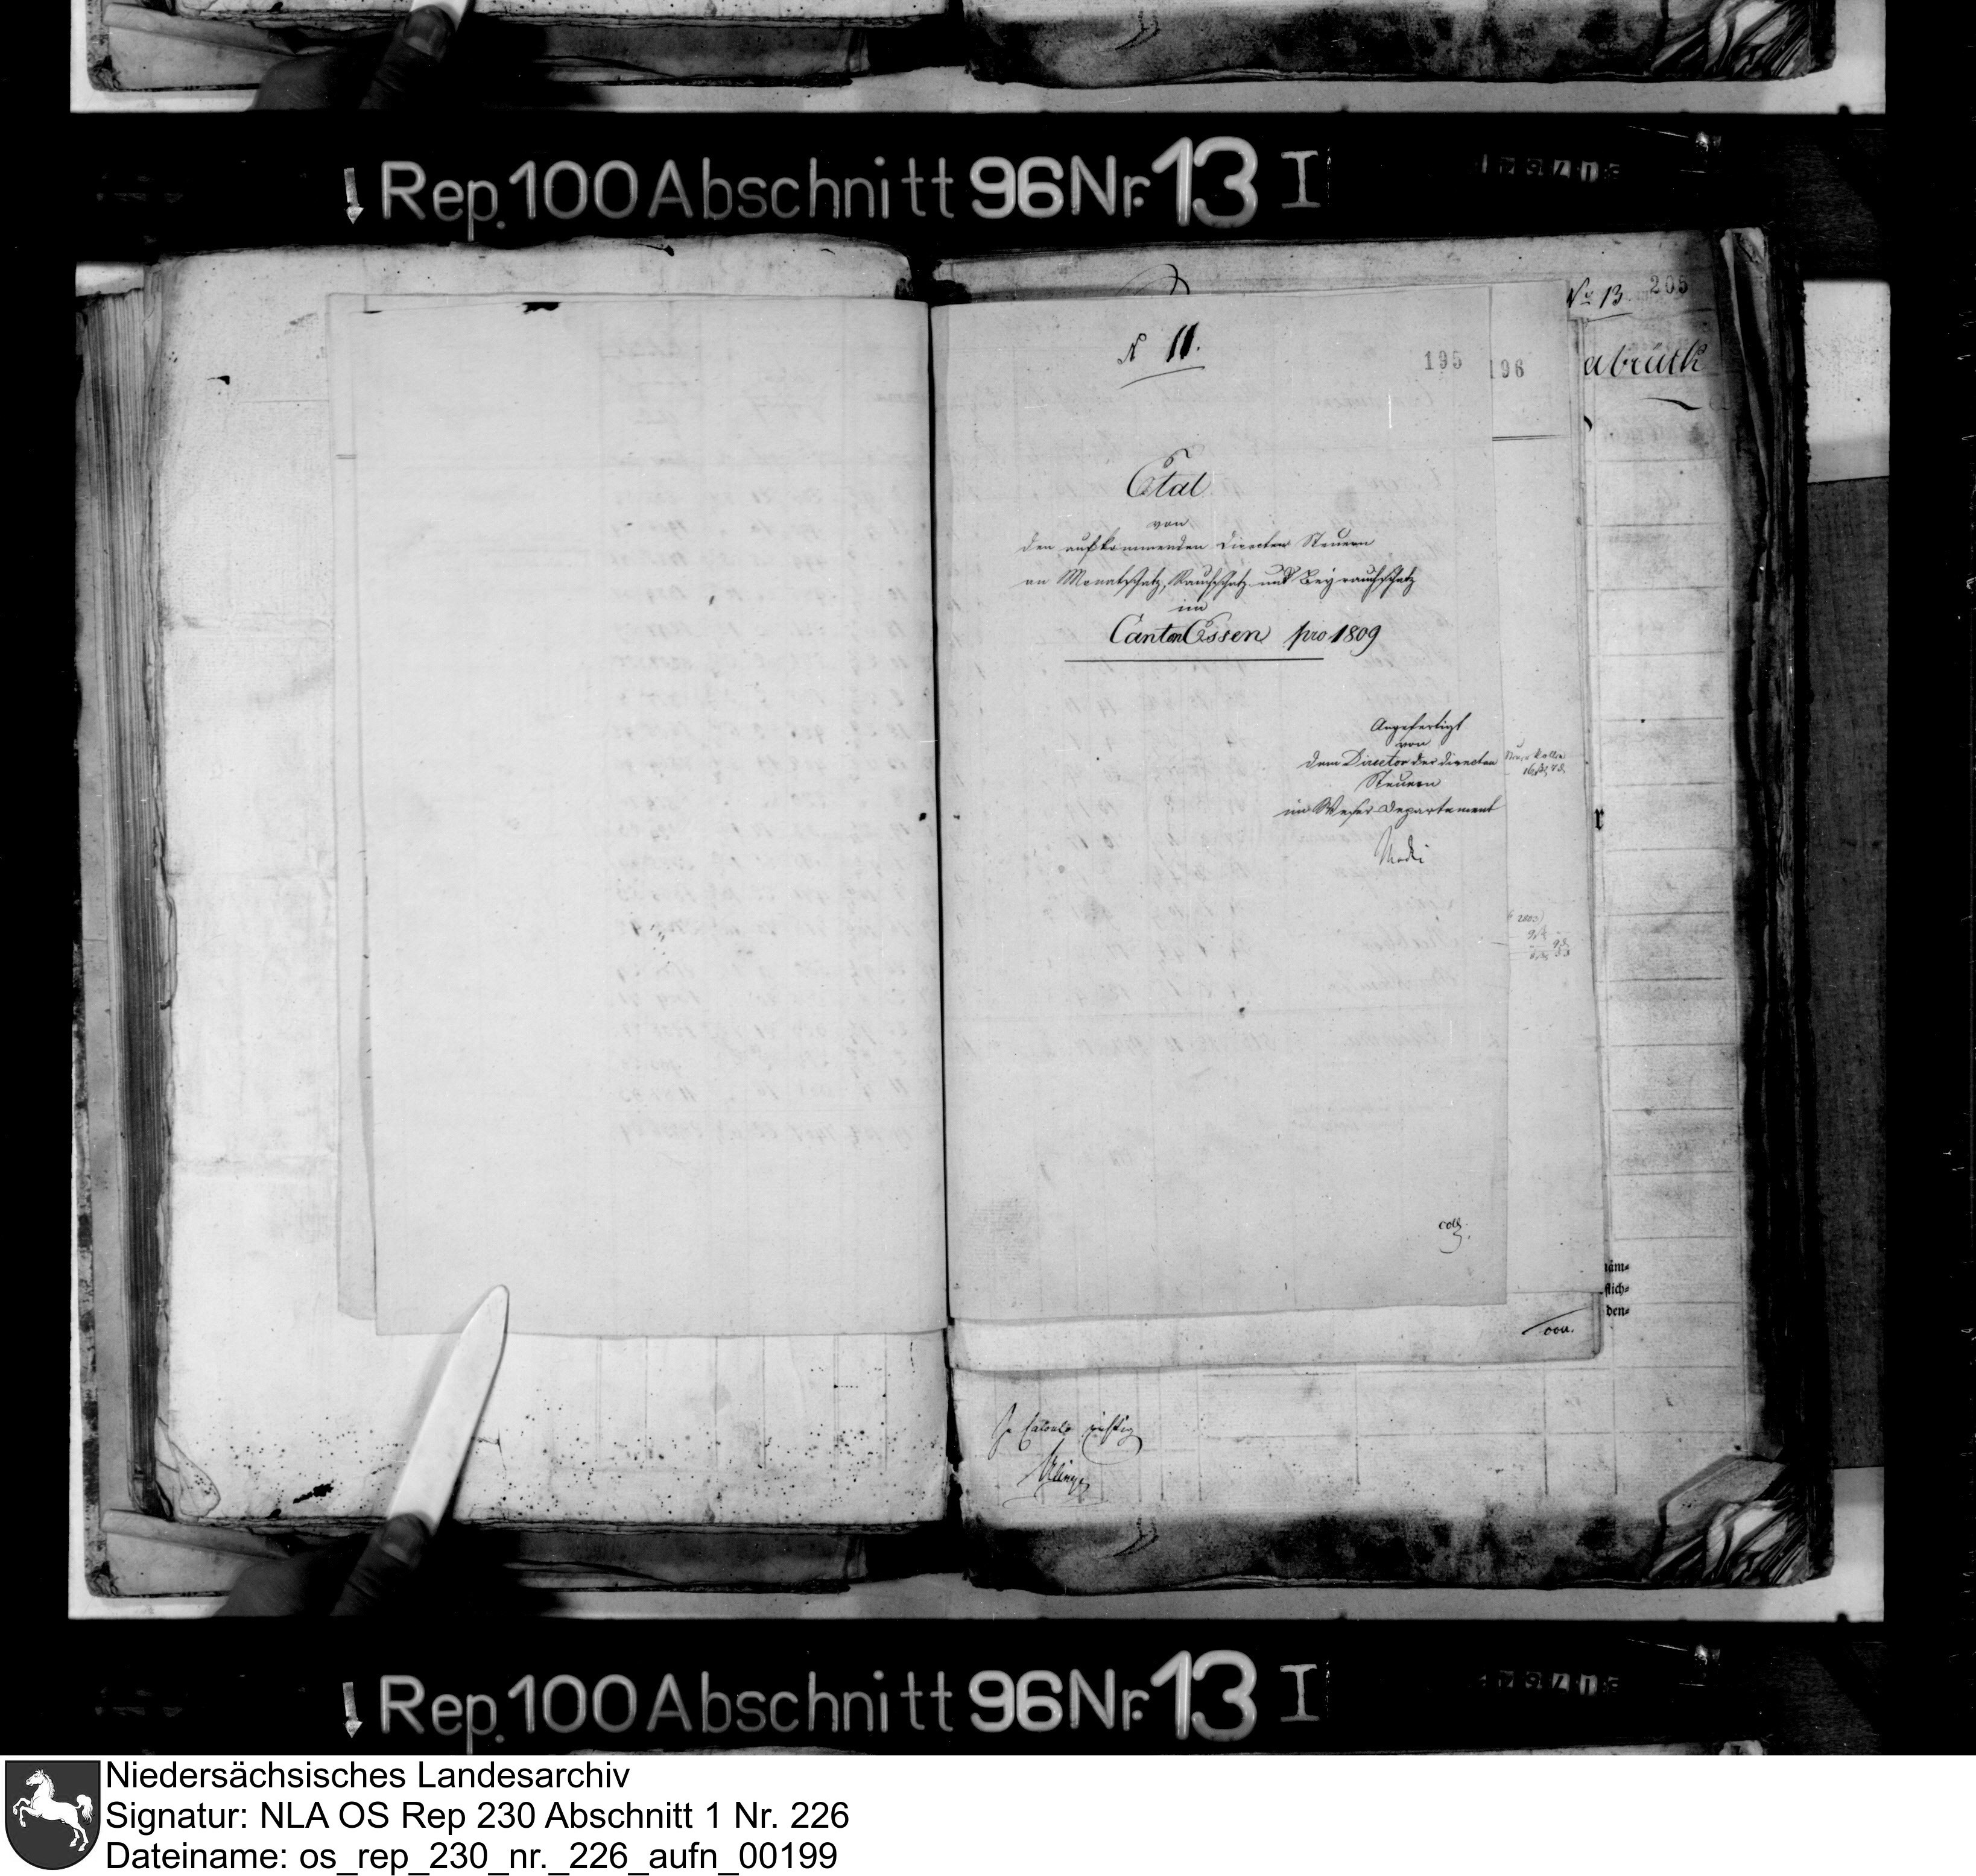 Rep. 100 Abschnitt 96 Nr. 13 I
No 13 205
abrück
N 11.
195
196
Etat
von
den aufkommenden directen Steuern
an Monatschatz, Rauchschatz und Beyrauchschatz
im
Canton Essen pro 1809
Angefertigt
von
dem Director der directen
Steuern
im Weser-Departement
r
coll.
näm-
flich-
den-
In Calculo richtig
Rep. 100 Abschnitt 96 Nr. 13 I
Niedersächsisches Landesarchiv
Signatur: NLA OS Rep 230 Abschnitt 1 Nr. 226
Dateiname: os_rep_230_nr._226_aufn_00199